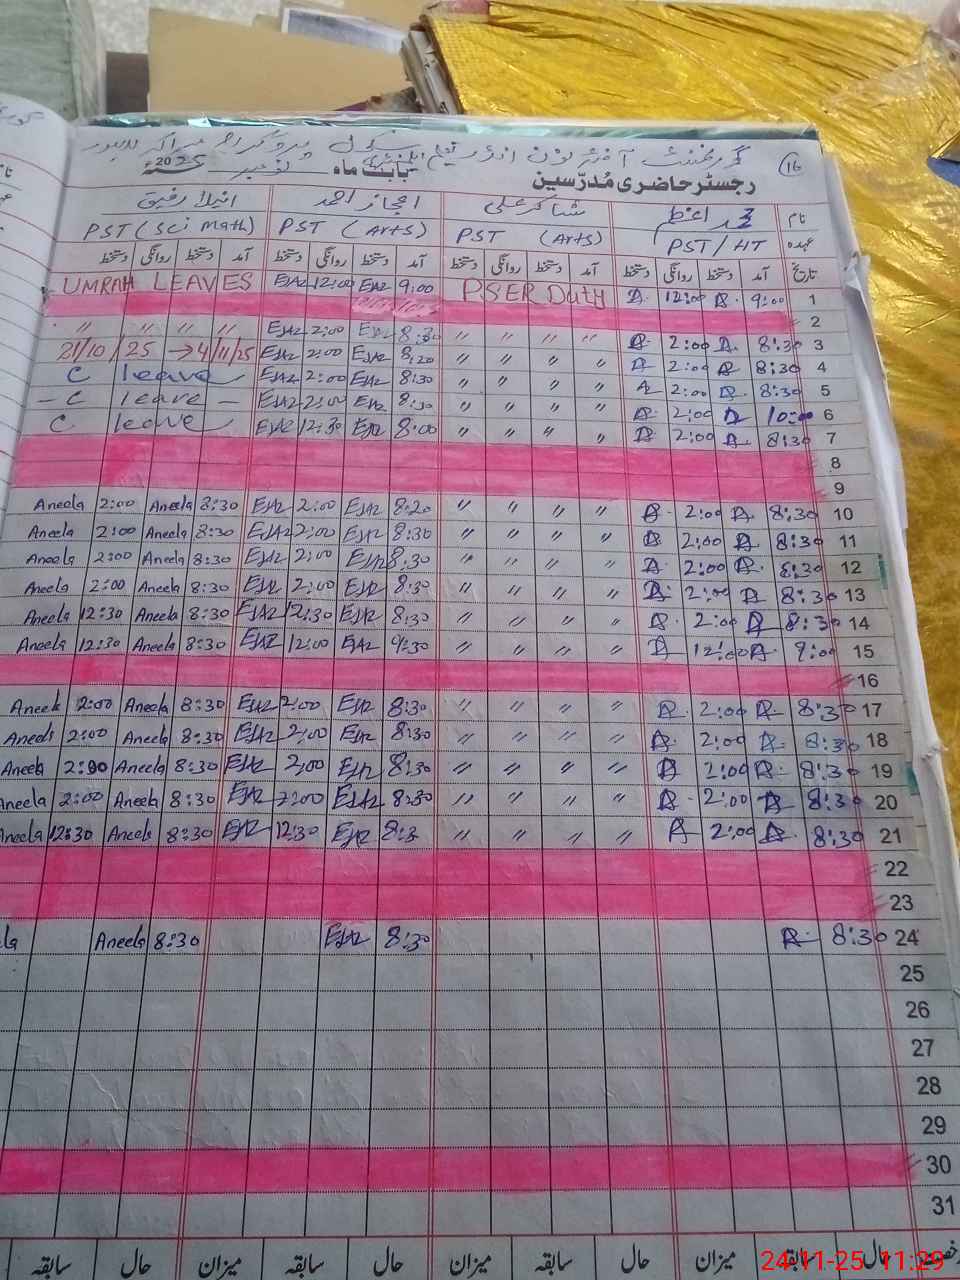 16
رجسٹر حاضری مُدرّسین بابت ماہ نومبر 2025
نام محمد اعظم شاکر علی اعجاز احمد انیلا رفیق
عہدہ PST/HT PST (Arts) PST (Arts) PST (Sci Math)
تاریخ آمد دستخط روانگی دستخط آمد دستخط روانگی دستخط آمد دستخط روانگی دستخط دستخط روانگی دستخط
UMRAH LEAVES EJAZ 12:00 EJAZ 9:00 PSER Duty 12:00 9:00 1
2
" " " " EJAZ 2:00 EJAZ 8:30 " " " " 2:00 8:30 3
21/10/25 → 4/11/25 EJAZ 2:00 EJAZ 8:20 " " " " 2:00 8:30 4
C leave EJAZ 2:00 EJAZ 8:30 " " " " 2:00 8:30 5
- C leave - EJAZ 2:00 EJAZ 8:30 " " " " 2:00 10:00 6
C leave EJAZ 12:30 EJAZ 8:00 " " " " 2:00 8:30 7
8
9
Aneela 2:00 Aneela 8:30 EJAZ 2:00 EJAZ 8:20 " " " " 2:00 8:30 10
Aneela 2:00 Aneela 8:30 EJAZ 2:00 EJAZ 8:30 " " " " 2:00 8:30 11
Aneela 2:00 Aneela 8:30 EJAZ 2:00 EJAZ 8:30 " " " " 2:00 8:30 12
Aneela 2:00 Aneela 8:30 EJAZ 2:00 EJAZ 8:30 " " " " 2:00 8:30 13
Aneela 12:30 Aneela 8:30 EJAZ 12:30 EJAZ 8:30 " " " " 2:00 8:30 14
Aneela 12:30 Aneela 8:30 EJAZ 12:00 EJAZ 9:30 " " " " 12:00 9:00 15
16
Aneela 2:00 Aneela 8:30 EJAZ 2:00 EJAZ 8:30 " " " " 2:00 8:30 17
Aneela 2:00 Aneela 8:30 EJAZ 2:00 EJAZ 8:30 " " " " 2:00 8:30 18
Aneela 2:00 Aneela 8:30 EJAZ 2:00 EJAZ 8:30 " " " " 2:00 8:30 19
Aneela 2:00 Aneela 8:30 EJAZ 2:00 EJAZ 8:30 " " " " 2:00 8:30 20
Aneela 12:30 Aneela 8:30 EJAZ 12:30 EJAZ 8:3 " " " " 2:00 8:30 21
22
23
Aneela 8:30 EJAZ 8:30 8:30 24
25
26
27
28
29
30
31
حال سابقہ میزان حال سابقہ میزان حال سابقہ میزان حال سابقہ
24-11-25 11:29